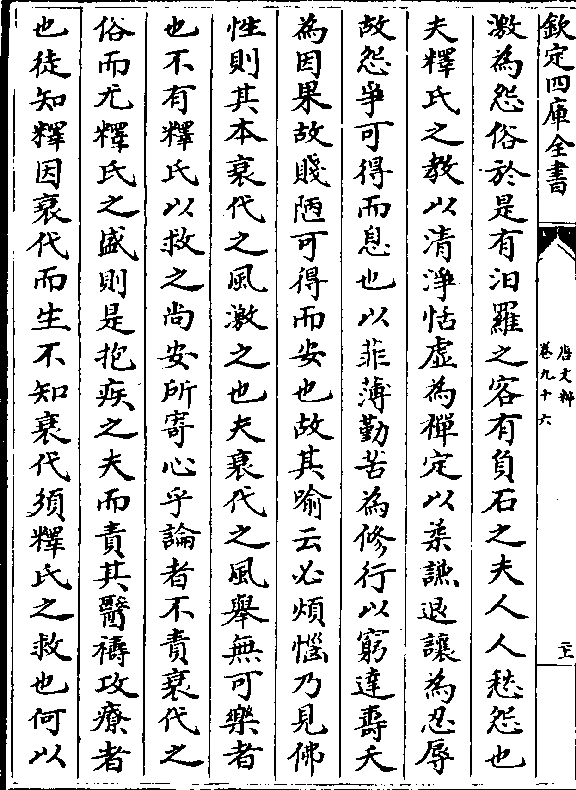 欽定四庫全書
唐文粹
卷九十六
激為怨俗於是有汨羅之容有負石之夫人人愁怨也
夫釋氏之教以清淨恬虛為禪定以柔謙退讓為忍辱
故怨爭可得而息也以菲薄勤苦為修行以窮達壽夭
為因果故賤陋可得而安也故其喻云必煩惱乃見佛
性則其本衰代之風激之也夫衰代之風舉無可樂者
也不有釋氏以救之尚安所寄心乎論者不責衰代之
俗而尤釋氏之盛則是抱疾之夫而責其醫禱攻療者
也徒知釋因衰代而生不知衰代須釋氏之救也何以